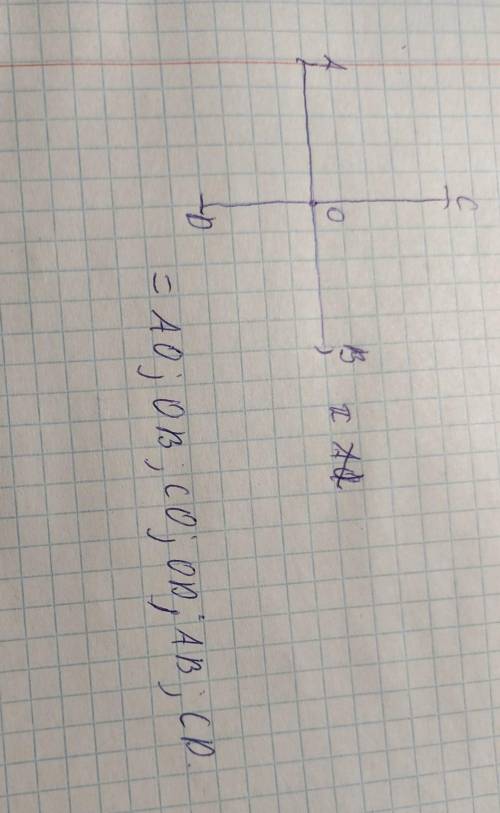 A
C
O
D
B
= AO; OB; CO; OD; AB; CD.